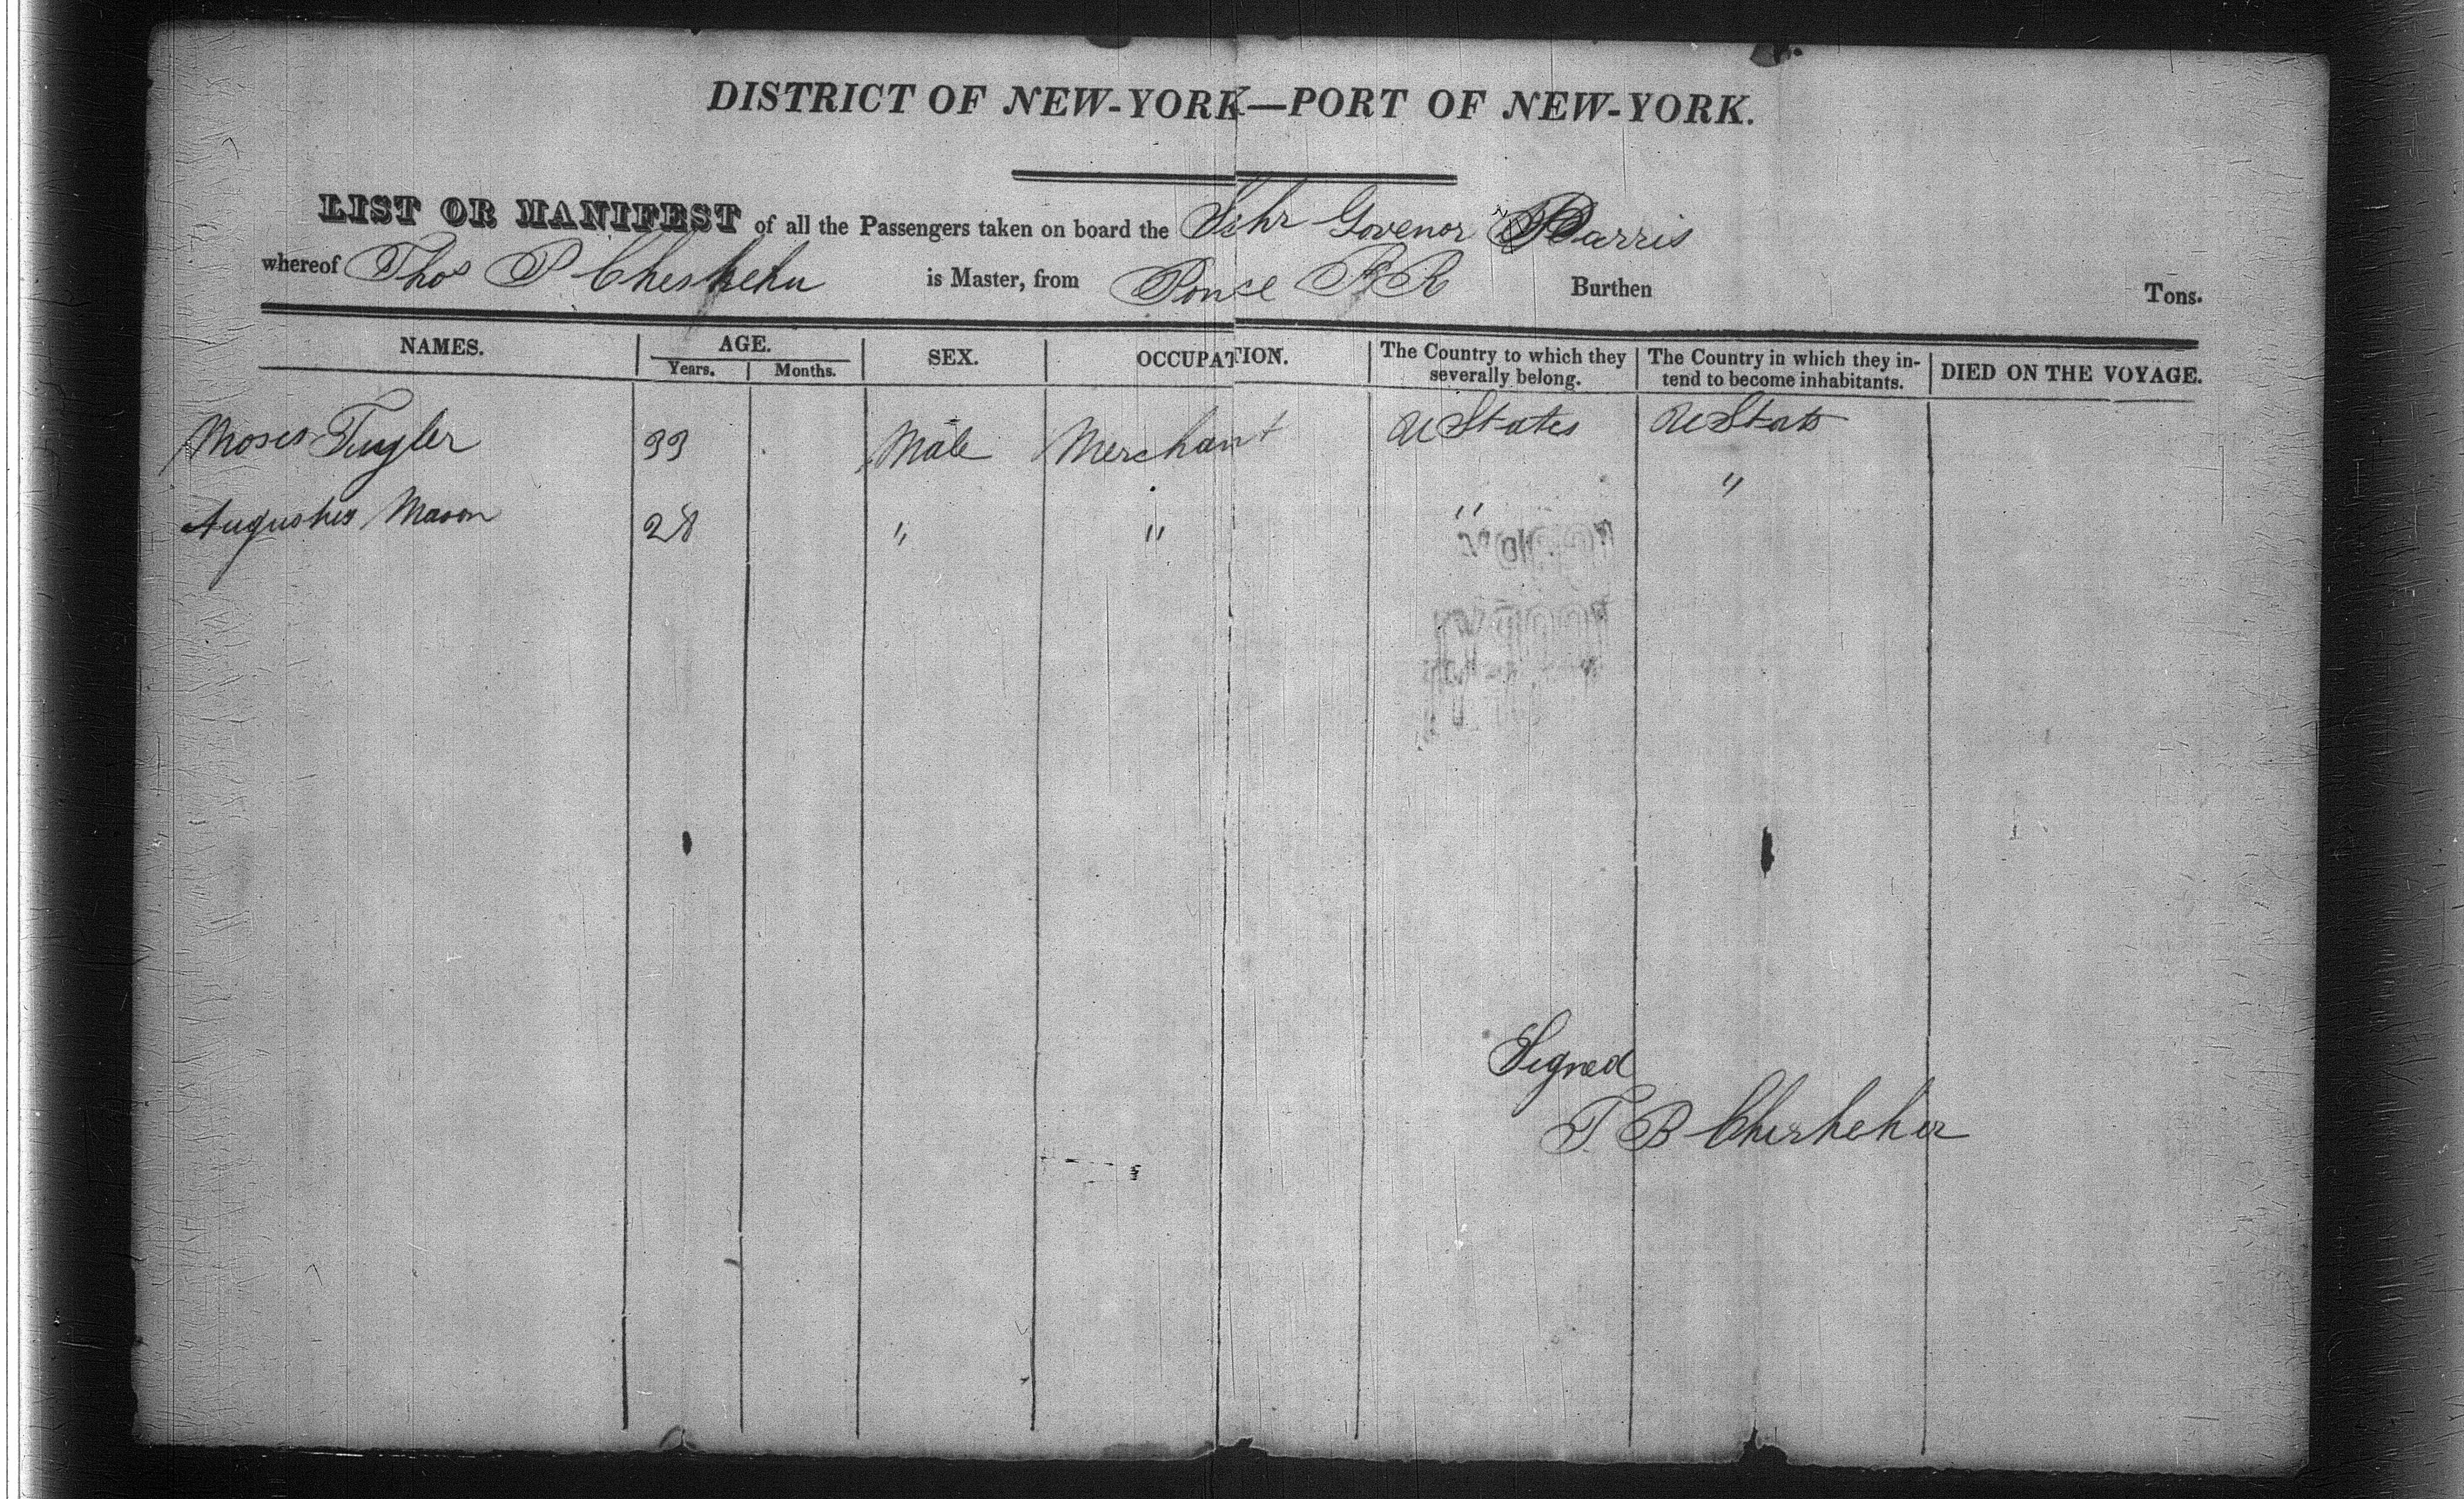 DISTRICT OF NEW-YORK—PORT OF NEW-YORK.
LIST OR MANIFEST of all the Passengers taken on board the Schr Govenor Parris
whereof Thos P is Master, from Ponce P R Burthen Tons.
NAMES. AGE. SEX. OCCUPATION. The Country to which they severally belong. The Country in which they in-tend to become inhabitants. DIED ON THE VOYAGE.
Years. Months.
Moses 33 Male Merchant U States U States
Augustus Mason 28 " " " "
Signed
T